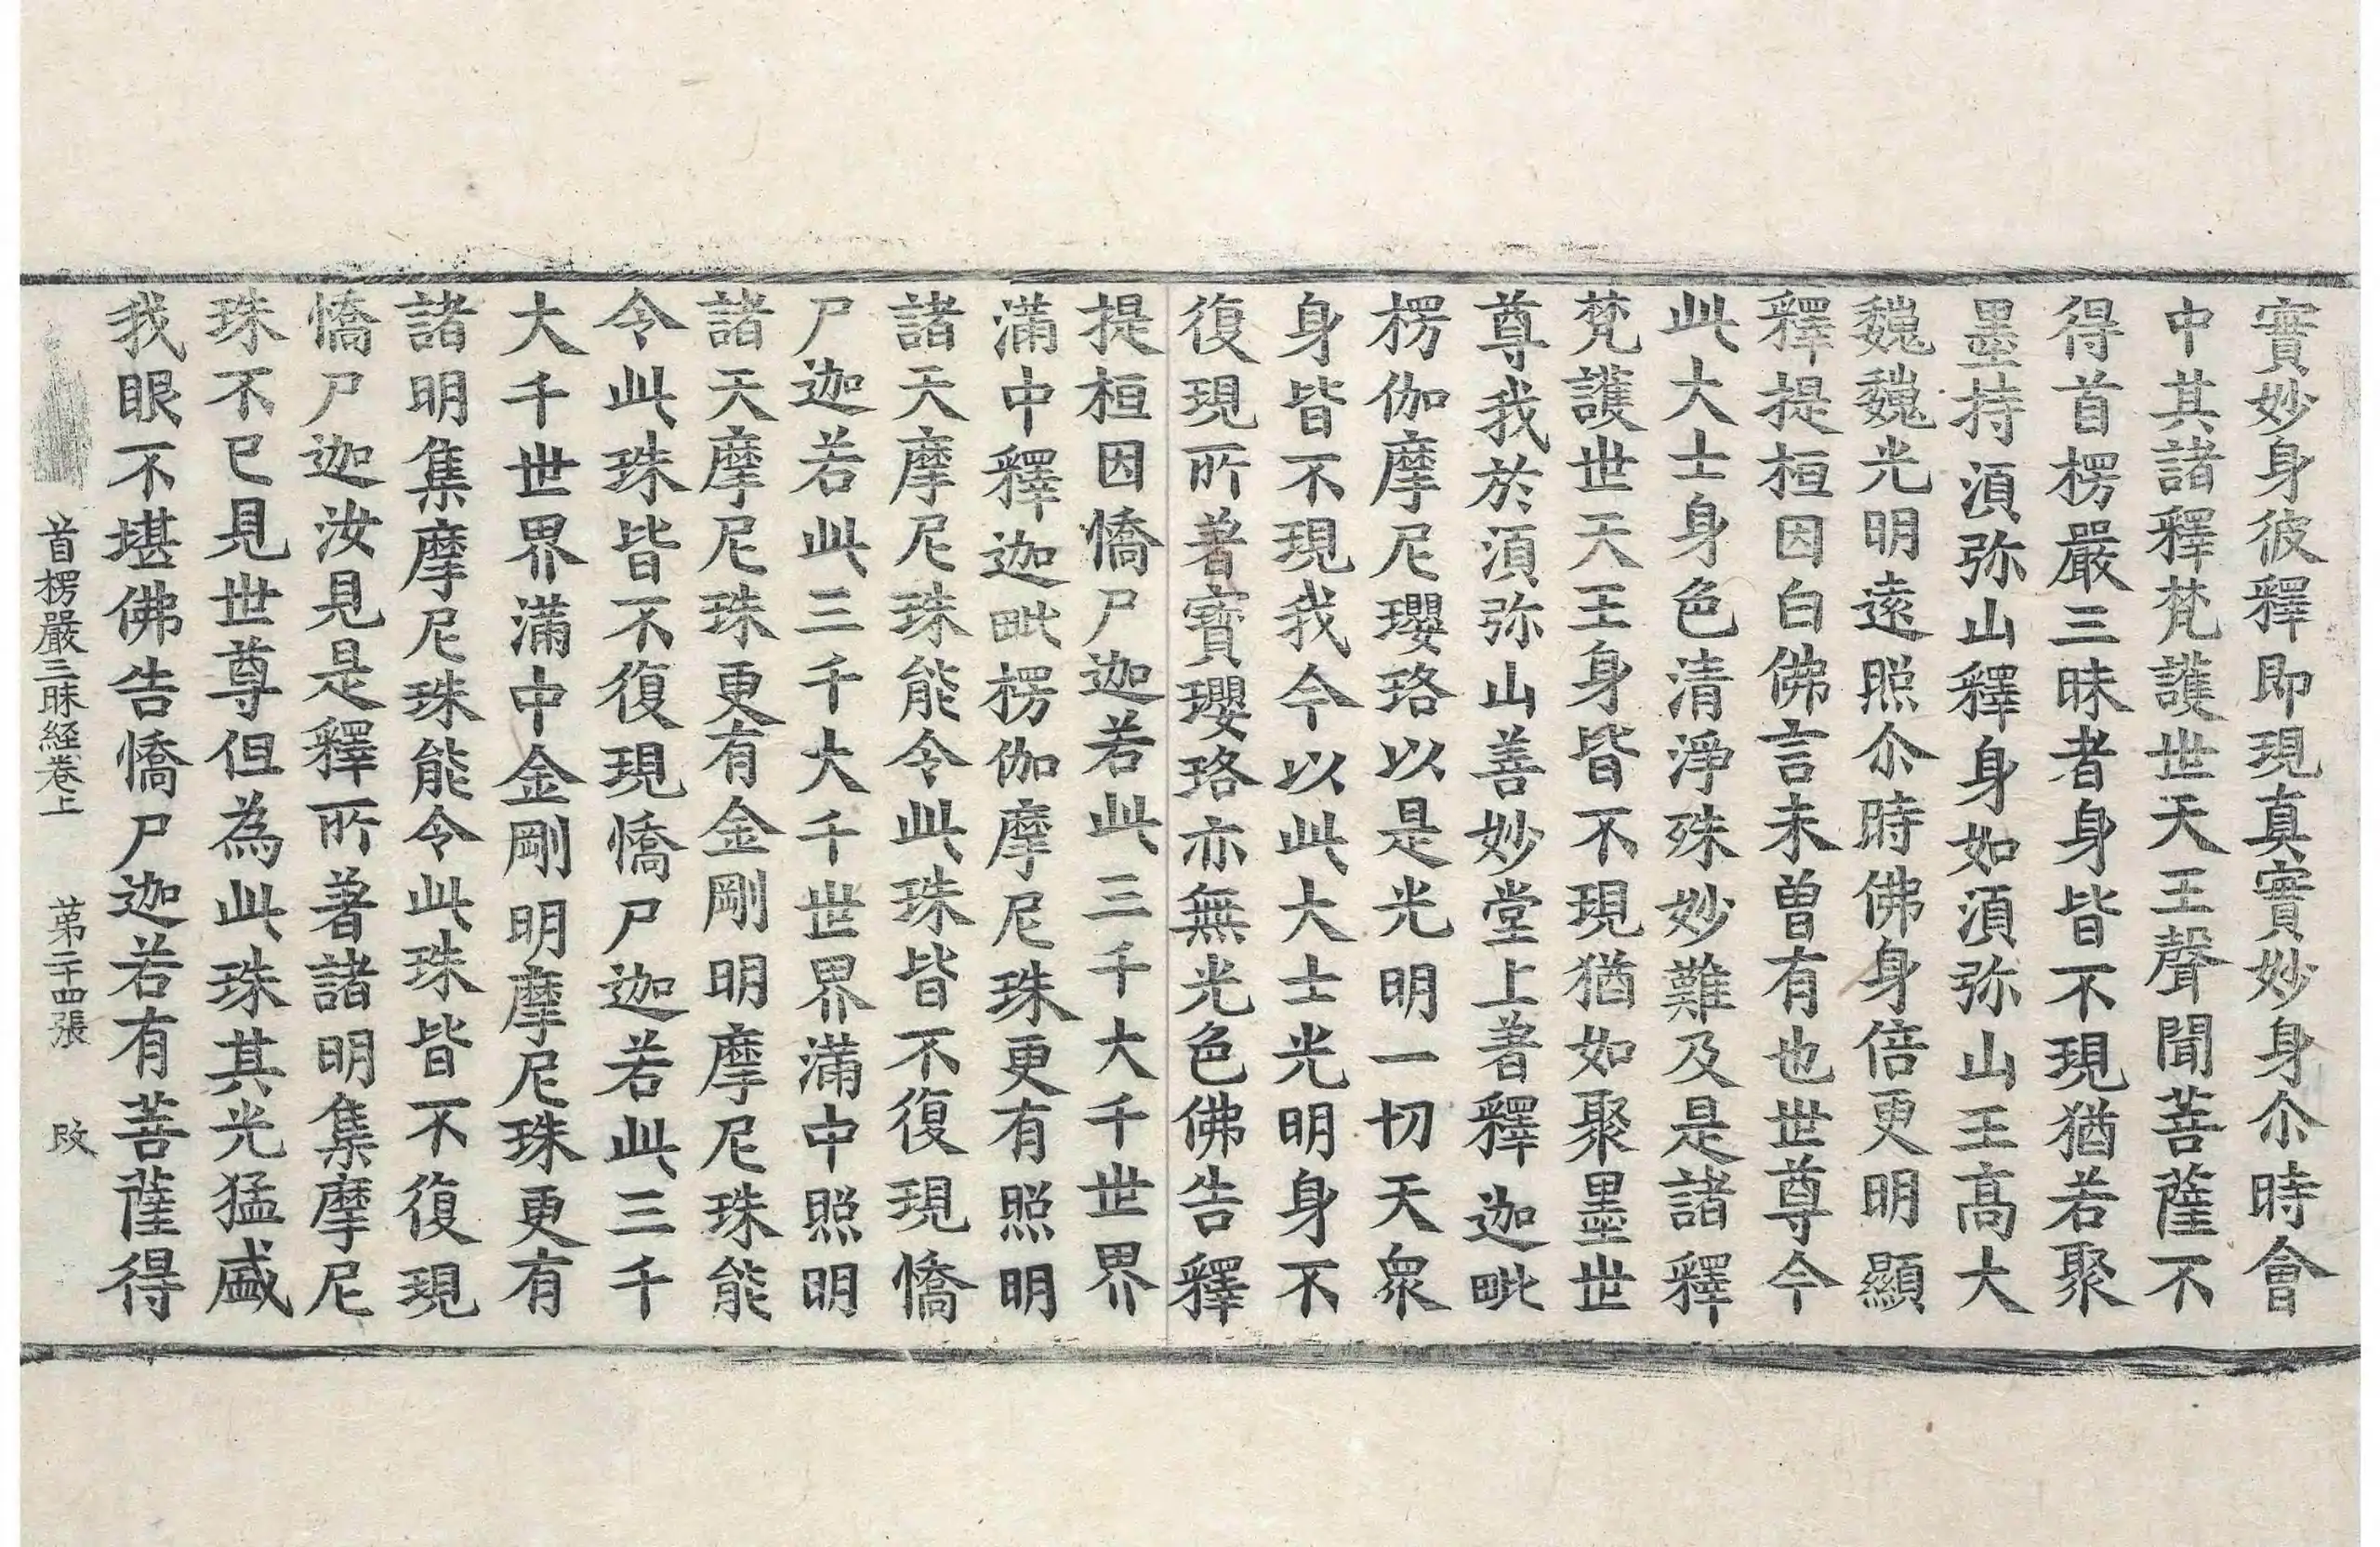 實妙身彼釋即現真實妙身尒時會
中其諸釋梵護世天王聲聞菩薩不
得首楞嚴三昧者身皆不現猶若聚
墨持須弥山釋身如須弥山王髙大
巍巍光明遠照尒時佛身倍更明顯
釋提桓因白佛言未曾有也世尊今
此大士身色清淨殊妙難及是諸釋
梵護世天王身皆不現猶如聚墨世
尊我於須弥山善妙堂上著釋迦毗
楞伽摩尼瓔珞以是光明一切天衆
身皆不現我今以此大士光明身不
復現所著寶瓔珞亦無光色佛告釋
提桓因憍尸迦若此三千大千世界
滿中釋迦毗楞伽摩尼珠更有照明
諸天摩尼珠能令此珠皆不復現憍
尸迦若此三千大千世界滿中照明
諸天摩尼珠更有金剛明摩尼珠能
令此珠皆不復現憍尸迦若此三千
大千世界滿中金剛明摩尼珠更有
諸明集摩尼珠能令此珠皆不復現
憍尸迦汝見是釋所著諸明集摩尼
珠不已見世尊但為此珠其光猛盛
我眼不堪佛告憍尸迦若有菩薩得
首楞嚴三昧経卷上 苐二十四張 改